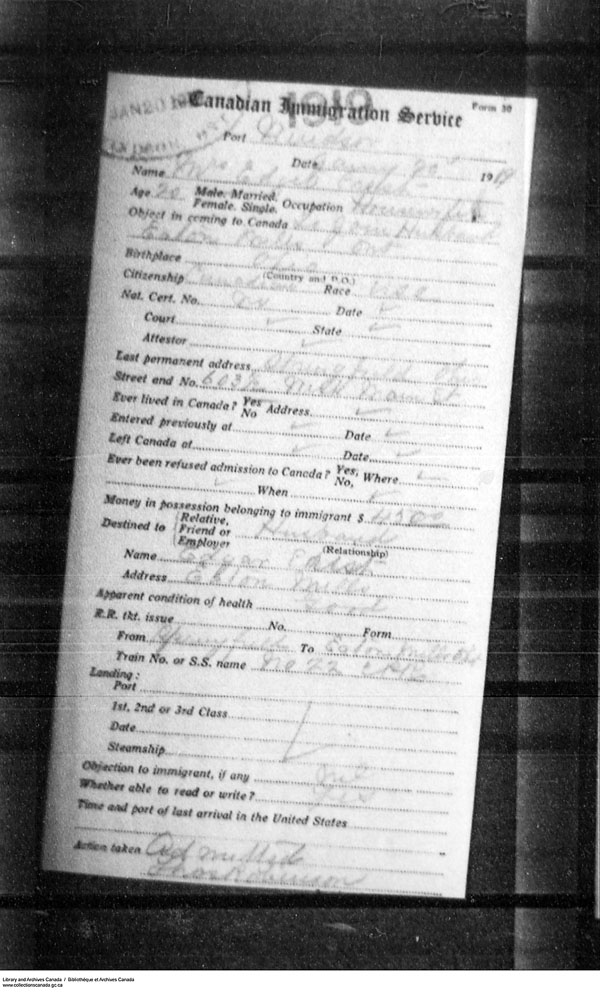 JAN 20 19
1919
Canadian Immigration Service Form 30
Port Windsor
Date Jany 20th 1919
Name Mrs Edgar
Age 20 Male. Married. Female. Single. Occupation Housewife
Object in coming to Canada To join Husband
Eaton Mills Ont
Birthplace
(Country and P.O.)
Citizenship Canadian Race
Nat. Cert. No. Date ✓
Court ✓ State ✓
Attestor ✓
Last permanent address Springfield Ohio
Street and No. 603½ Main St
Ever lived in Canada? Yes No Address ✓
Entered previously at ✓ Date ✓
Left Canada at ✓ Date ✓
Ever been refused admission to Canada? Yes, No, Where ✓
✓ When ✓
Money in possession belonging to immigrant $ 4500
Destined to Relative, Friend or Employer Husband
(Relationship)
Name Edgar
Address Eaton Mills
Apparent condition of health Good
R.R. tkt. issue No. Form
From Springfield To Eaton Mills Ont
Train No. or S.S. name No 22
Landing:
Port
1st, 2nd or 3rd Class
Date
Steamship
Objection to immigrant, if any
Whether able to read or write? Yes
Time and port of last arrival in the United States
Action taken Admitted
Library and Archives Canada / Bibliothèque et Archives Canada
www.collectionscanada.gc.ca